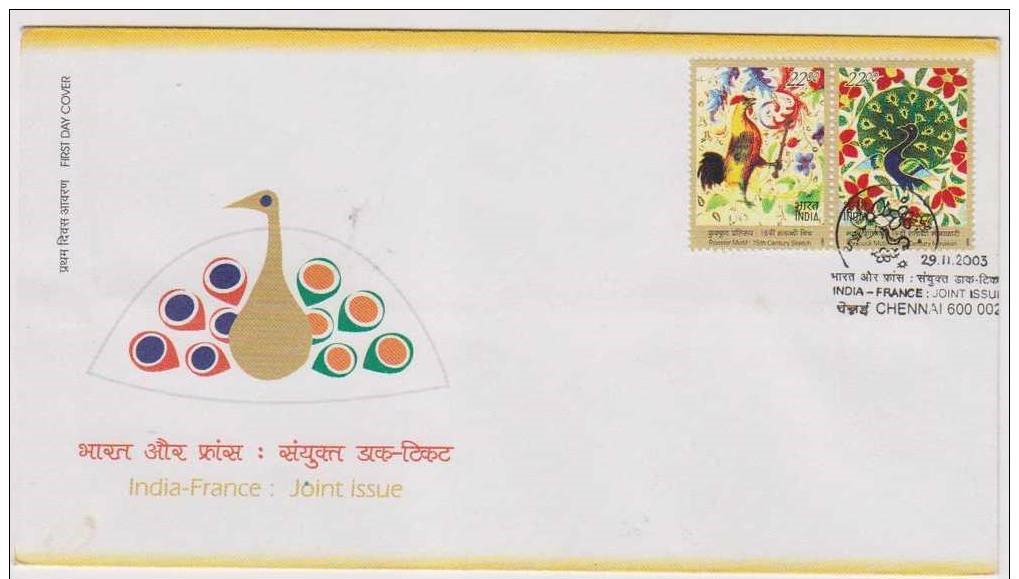 प्रथम दिवस आवरण FIRST DAY COVER
2200
2200
भारत
INDIA
भारत
INDIA
Rooster Motif : 15th Century Sketch
29.11.2003
भारत और फ्रांस : संयुक्त डाक-टिक
INDIA – FRANCE : JOINT ISSU
चेन्नई CHENNAI 600 002
भारत और फ्रांस : संयुक्त डाक-टिकट
India-France : Joint Issue